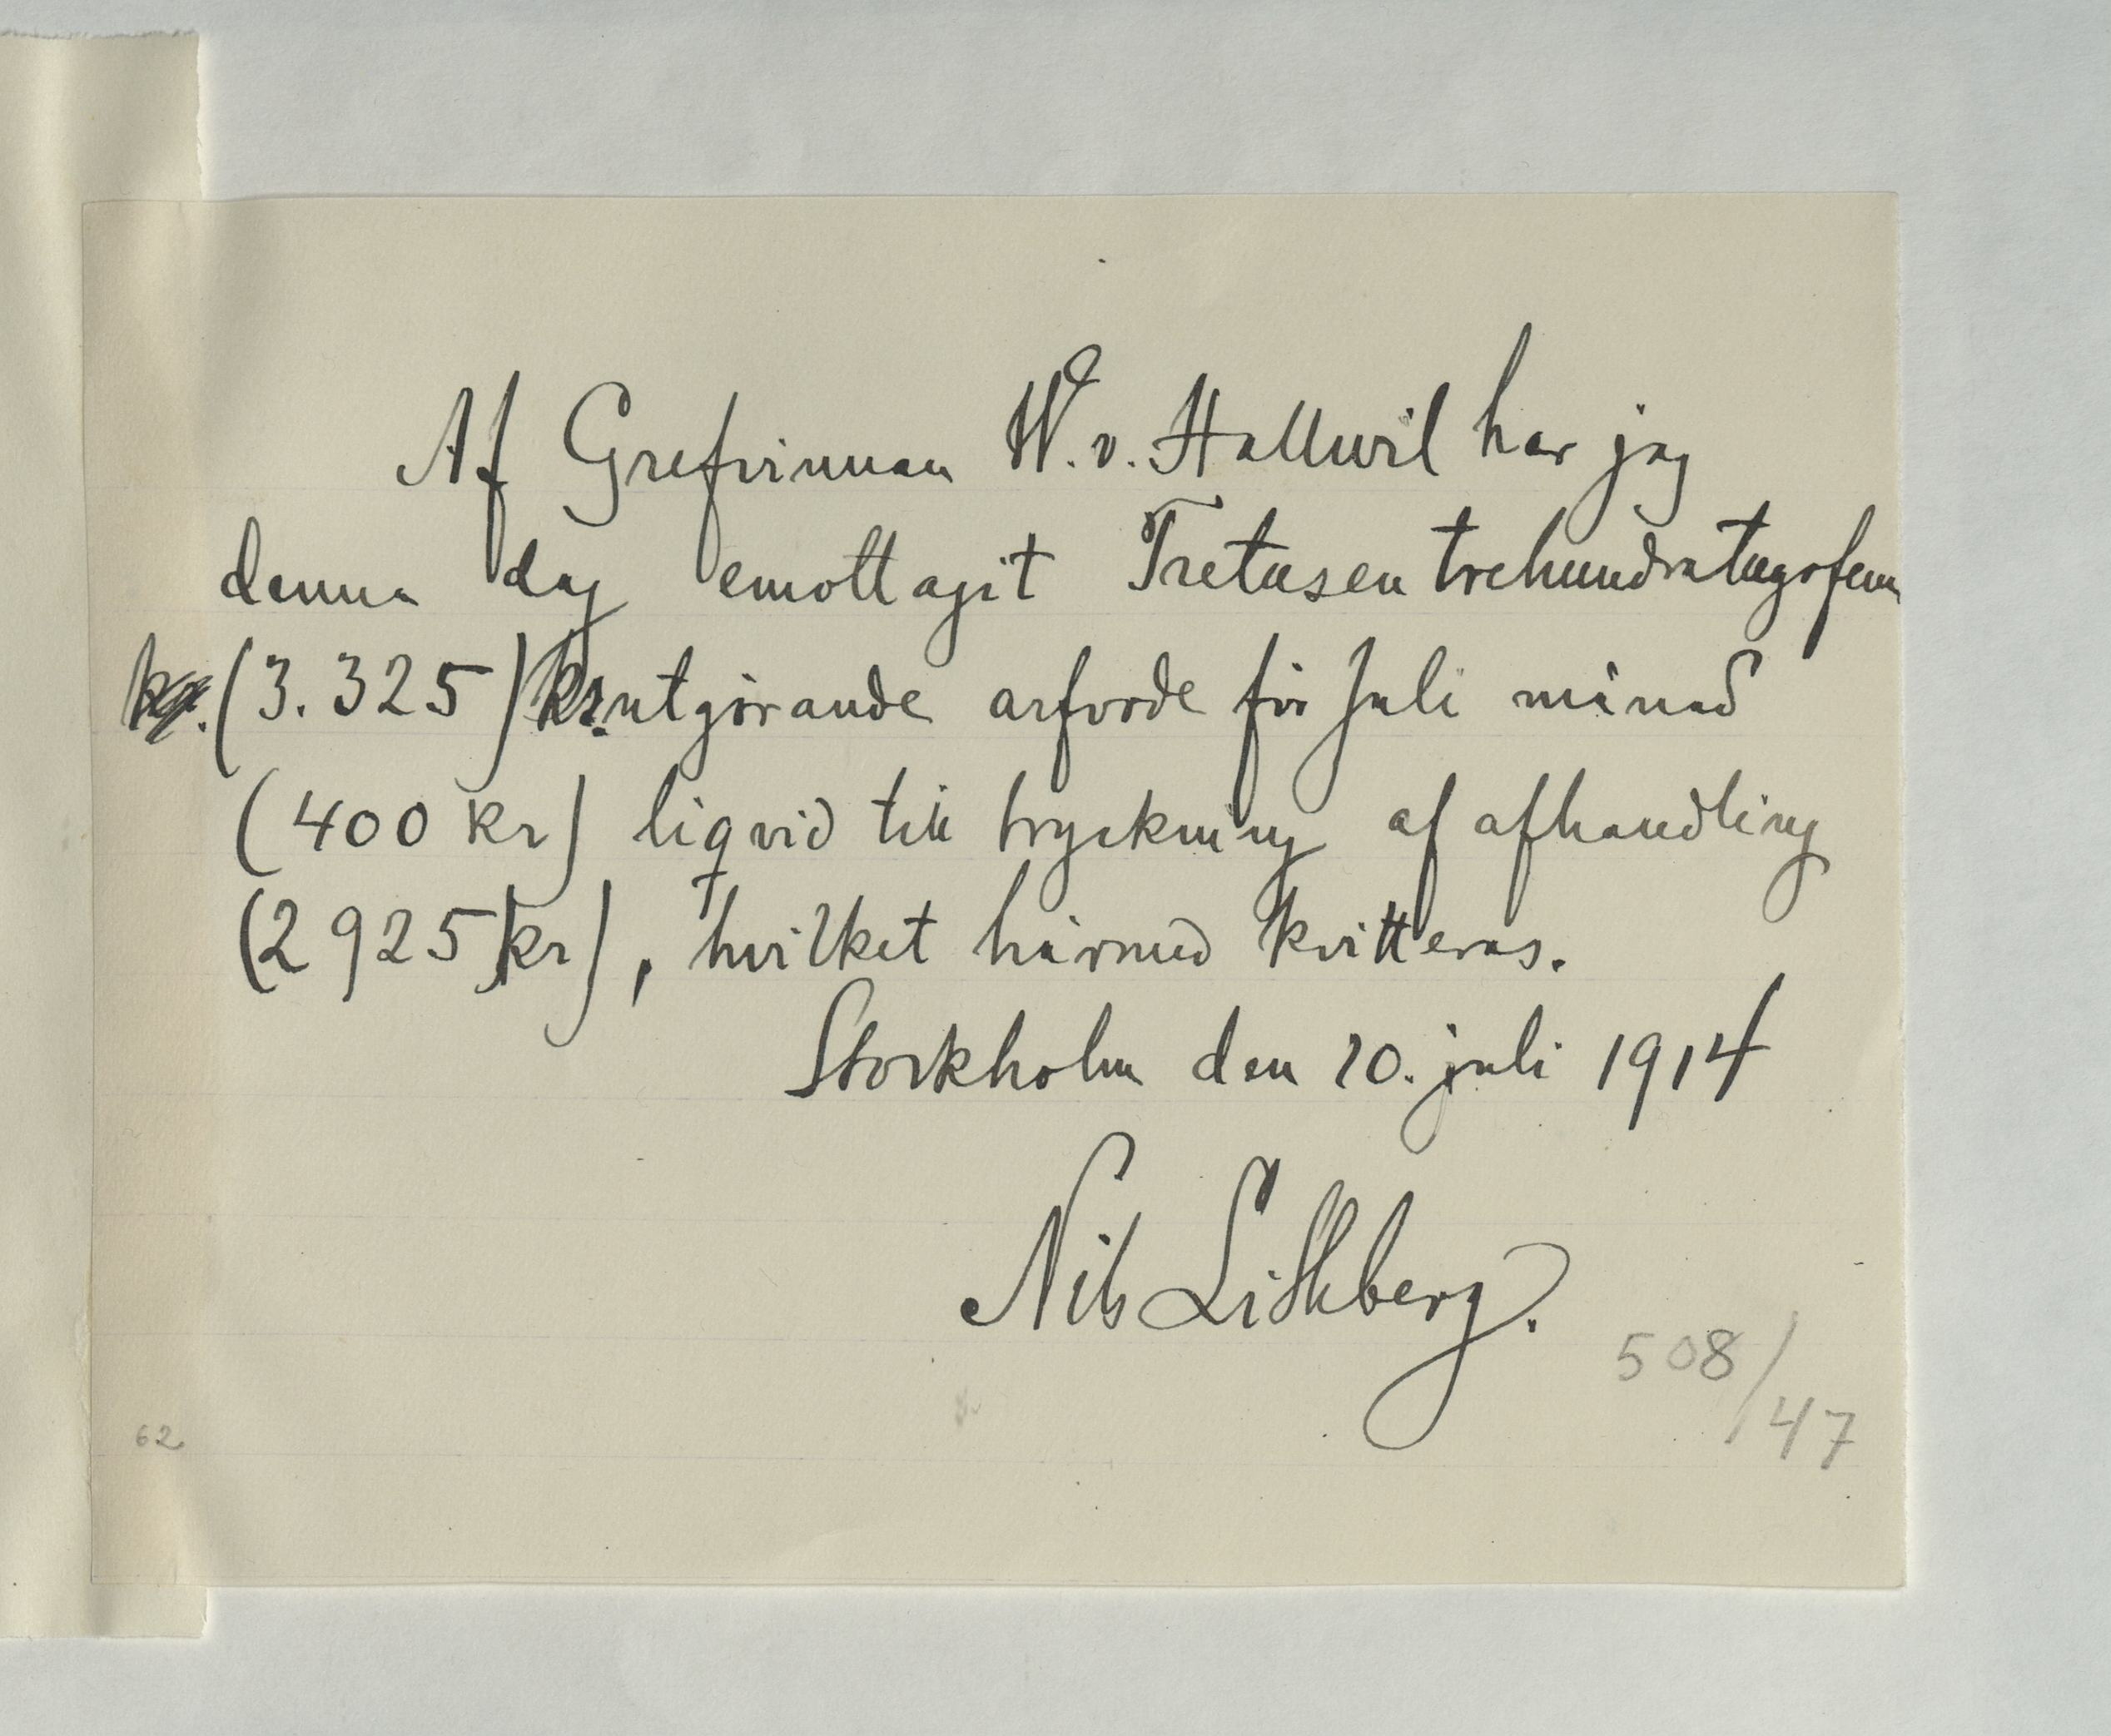 Af Grefvinnan W. v. Hallwil har jag
denna dag emottagit Tretusen trehundratugofem
kr. (3.325) kr. utgörande arfvode för Juli månad
(400 kr) liqvid till tryckning af afhandling
(2925 kr), hvilket härmed kvitteras.
Stockholm den 10. juli 1914
Nils Lithberg.
508/47
62